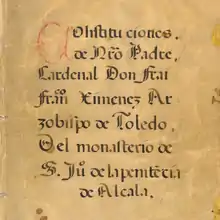 Constituciones
de Nr̃o Padre,
Cardenal Don Frai
Fran̄ Ximenez Ar
zobispo de Toledo,
Del monasterio de
S. Ju̅ de la penitẽcia
de Alcala.